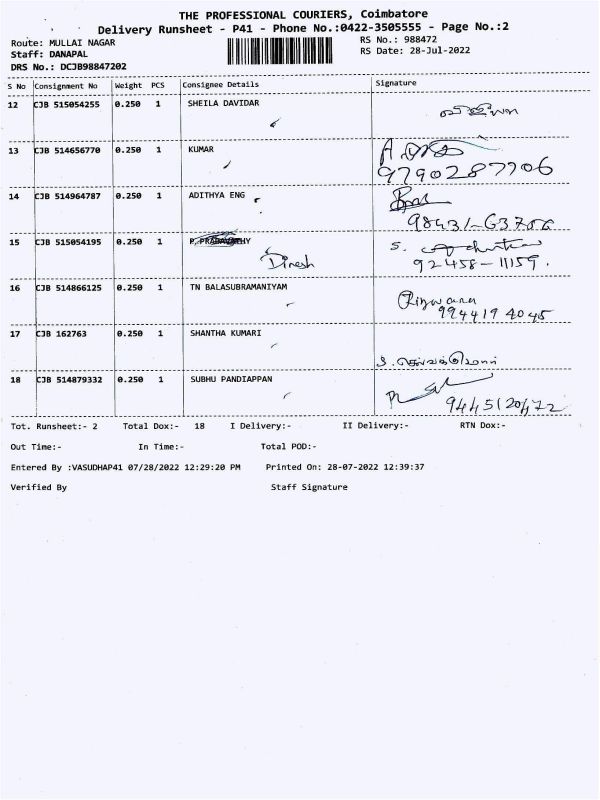 THE PROFESSIONAL COURIERS, Coimbatore
Delivery Runsheet - P41 - Phone No.:0422-3505555 - Page No.:2
Route: MULLAI NAGAR
RS No.: 988472
Staff: DANAPAL
RS Date: 28-Jul-2022
DRS No.: DCJB98847202
S No Consignment No Weight PCS Consignee Details Signature
12 CJB 515054255 0.250 1 SHEILA DAVIDAR
13 CJB 514656770 0.250 1 KUMAR
9790287706
14 CJB 514964787 0.250 1 ADITHYA ENG
15 CJB 515054195 0.250 1 P. PRABAVATHY
Dinesh
92458-11159.
16 CJB 514866125 0.250 1 TN BALASUBRAMANIYAM
9944194045
17 CJB 162763 0.250 1 SHANTHA KUMARI
18 CJB 514879332 0.250 1 SUBHU PANDIAPPAN
9445120472
Tot. Runsheet:- 2 Total Dox:- 18 I Delivery:- II Delivery:- RTN Dox:-
Out Time:- In Time:- Total POD:-
Entered By :VASUDHAP41 07/28/2022 12:29:20 PM Printed On: 28-07-2022 12:39:37
Verified By Staff Signature